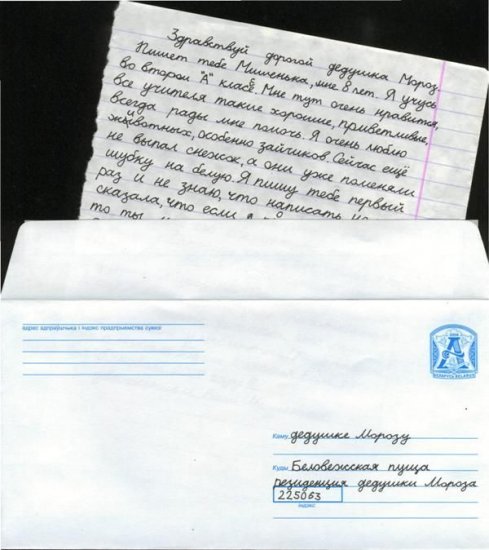 Здравствуй дорогой дедушка Мороз.
Пишет тебе Мишенька, мне 8 лет. Я учусь
во втором "А" класе. Мне тут очень нравится,
все учителя такие хорошие, приветливые,
всегда рады мне помочь. Я очень люблю
животных, особенно зайчиков. Сейчас ещё
не выпал снежок, а они уже поменяли
шубку на белую. Я пишу тебе первый
раз и не знаю, что написать
сказала, что если
то ты
адрас адпраўшчыка і індэкс прадпрыемства сувязі
А
БЕЛАРУСЬ BELARUS
Каму дедушке Морозу
Куды Беловежская пуща
резиденция дедушки Мороза
225063
індэкс